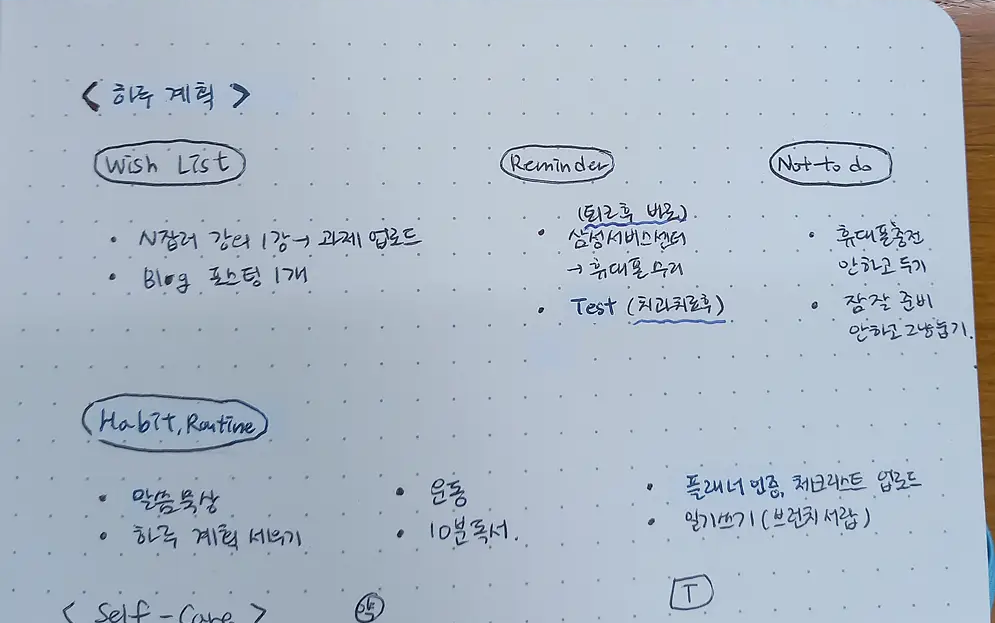 < 하루 계획 >
Wish List
• N잡러 강의 1강 → 과제 업로드
• Blog 포스팅 1개
Reminder
(퇴근후 바로)
• 삼성서비스센터
→ 휴대폰 수리
• Test (치과치료후)
Not to do
• 휴대폰충전
안하고 두기
• 잠잘 준비
안하고 그냥 눕기.
Habit, Routine
• 말씀묵상
• 하루 계획 세우기
• 운동
• 10분독서.
• 플래너 인증, 체크리스트 업로드
• 일기쓰기 (브런치서랍)
< Self-Care >
약
T